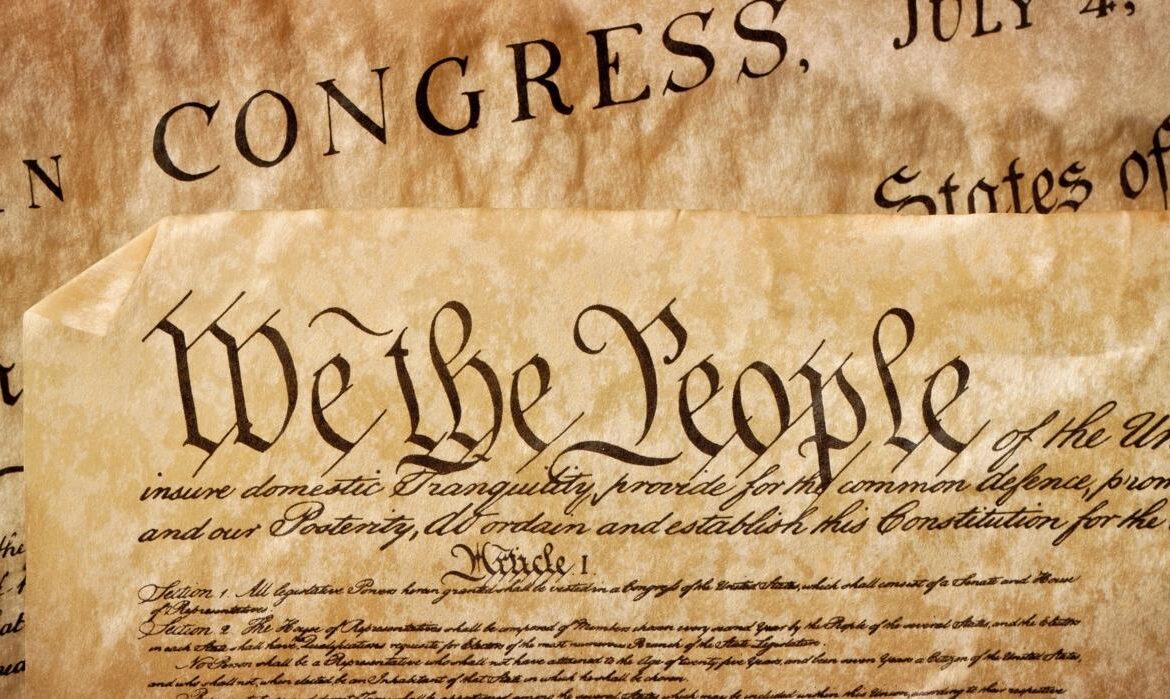 IN CONGRESS, JULY 4,
States of
We the People of the Un
insure domestic Tranquility, provide for the common defence, prom
and our Posterity, do ordain and establish this Constitution for the
Article I.
Section 1. All legislative Powers herein granted shall be vested in a Congress of the United States, which shall consist of a Senate and House
of Representatives.
Section 2. The House of Representatives shall be composed of Members chosen every second Year by the People of the several States, and the Electors
in each State shall have the Qualifications requisite for Electors of the most numerous Branch of the State Legislature.
No Person shall be a Representative who shall not have attained to the Age of twenty five Years, and been seven Years a Citizen of the United States,
and who shall not, when elected, be an Inhabitant of that State in which he shall be chosen.